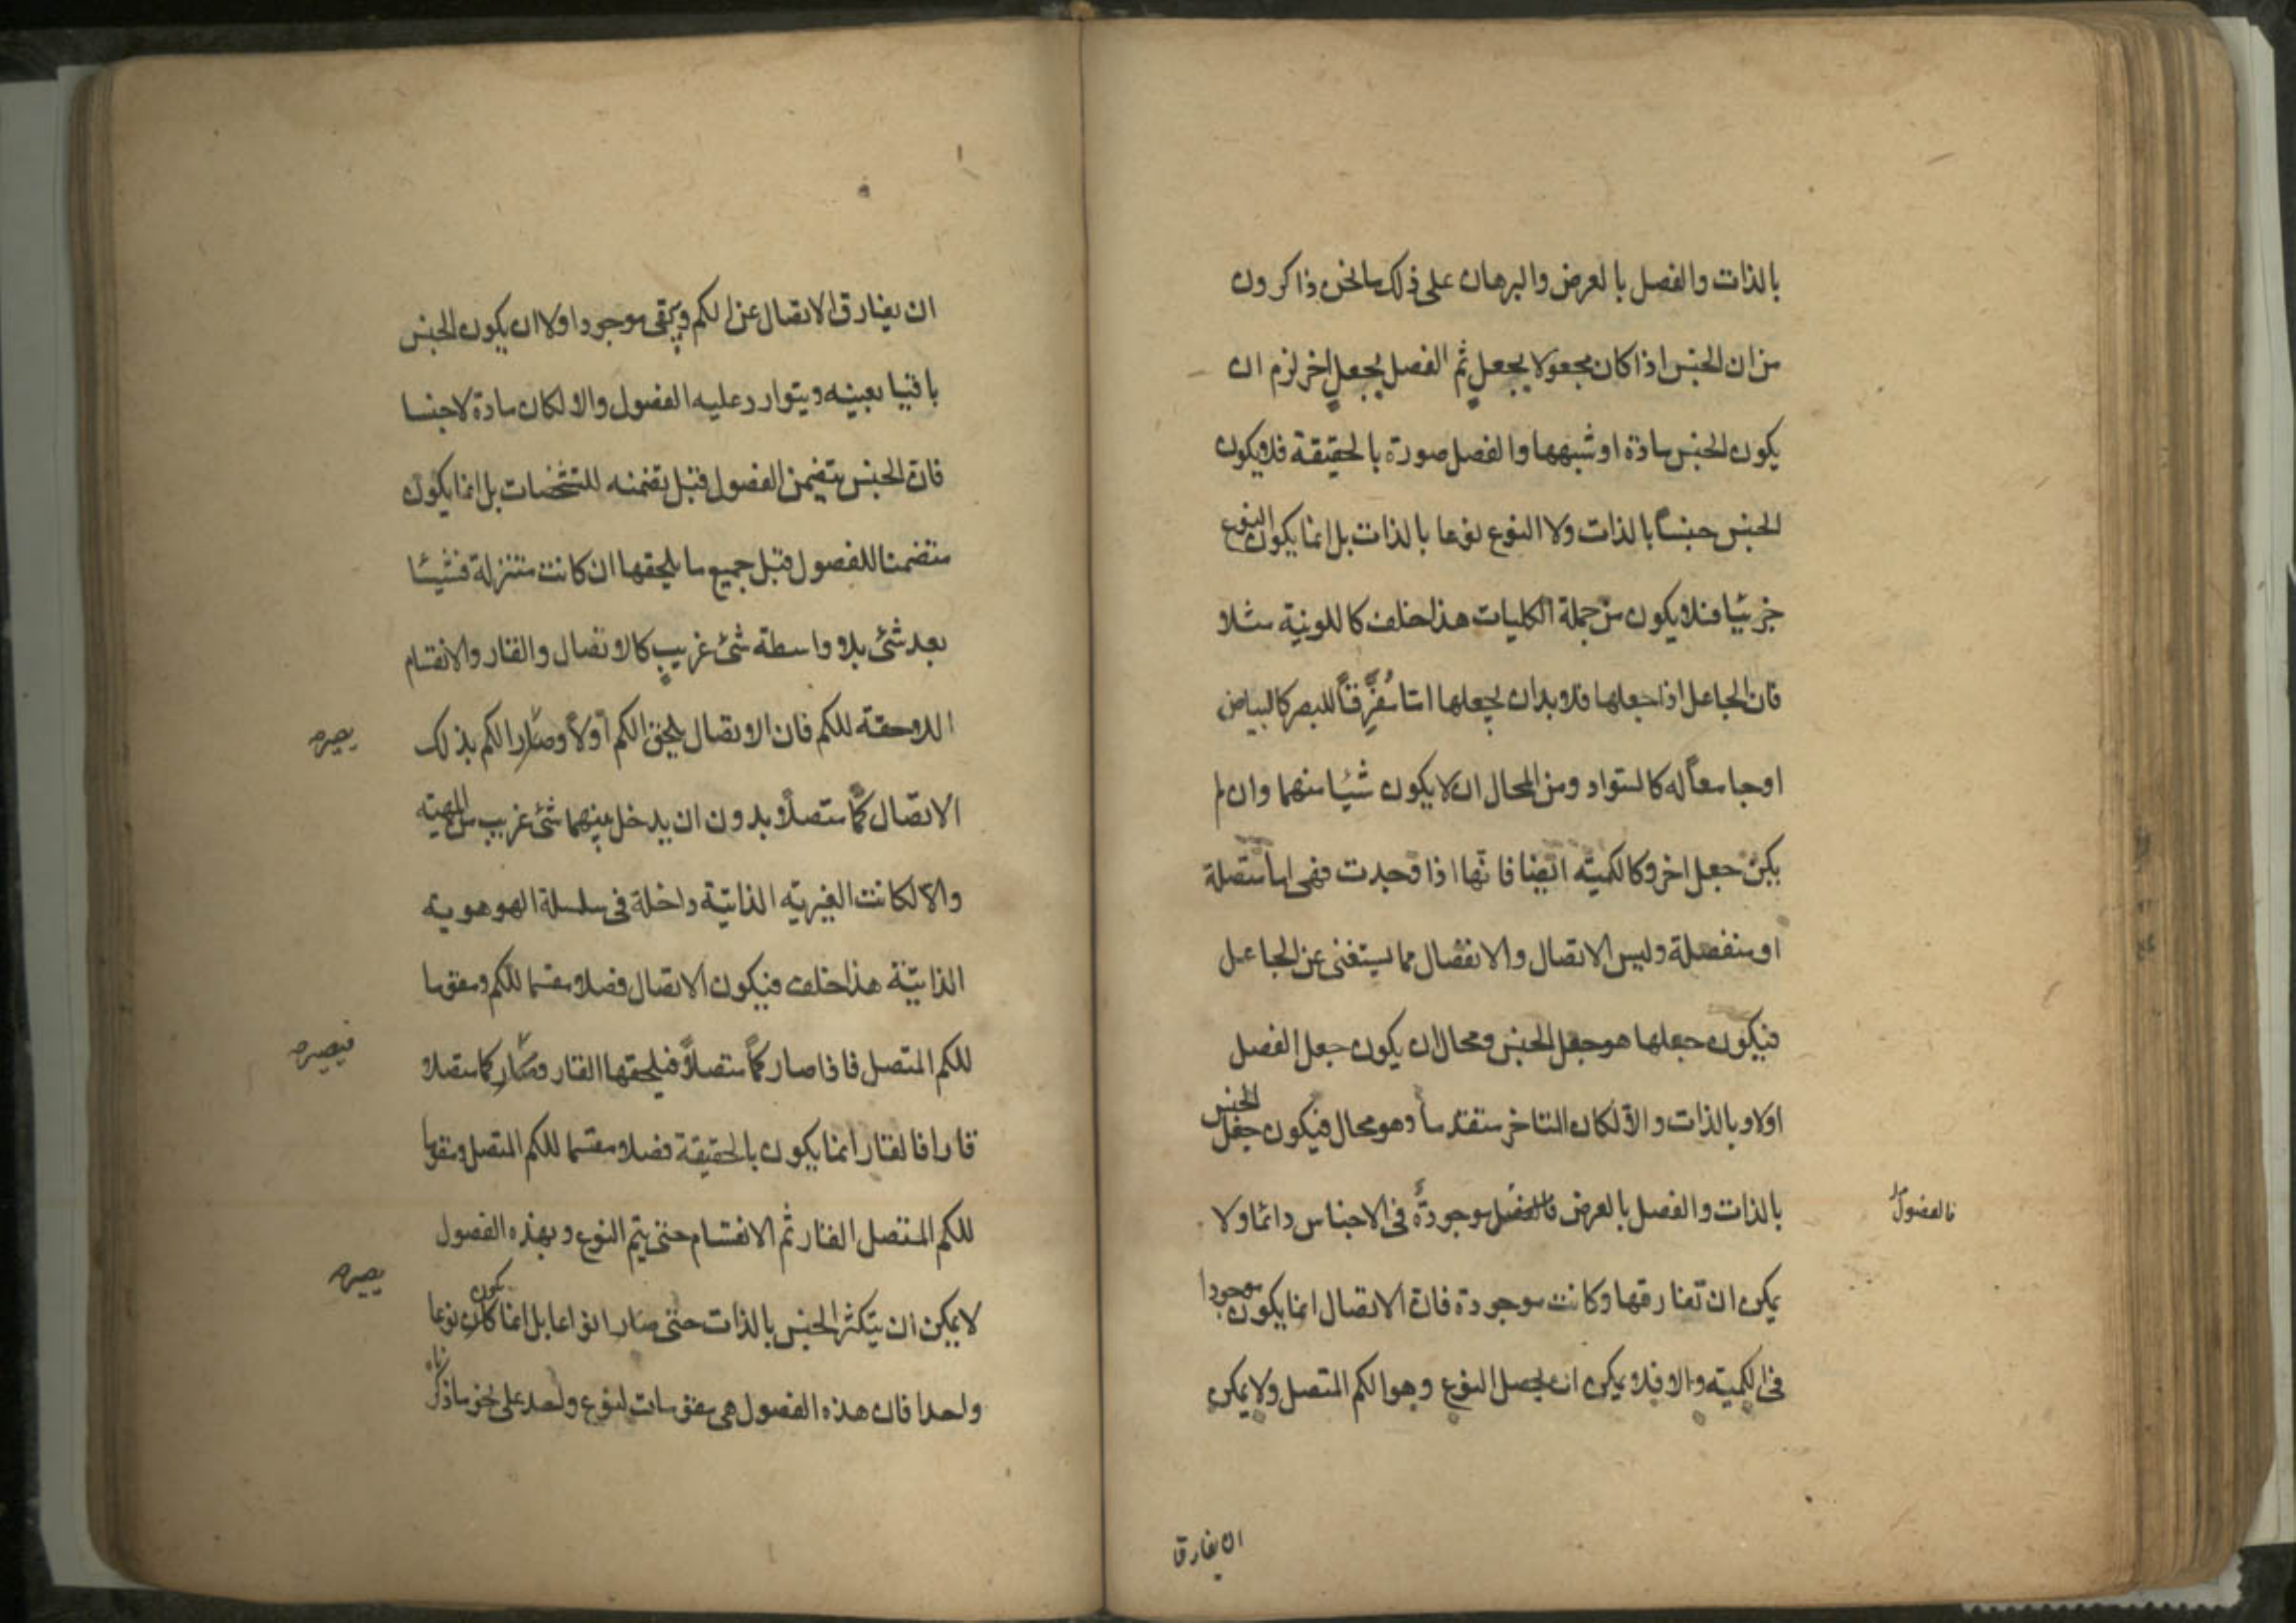 بالذات والفصل بالعرض والبرهان على ذلك ما نحن ذاكرون
من ان الجنس اذا كان مجعولا بجعلٍ ثم الفصل بجعلٍ اخر لزم ان
يكون الجنس مادة او شبهها والفصل صورة بالحقيقة فلا يكون
الجنس جنساً بالذات ولا النوع نوعا بالذات بل انما يكون النوع
جزئيا فلا يكون من جملة الكليات هذا خلف كاللونية مثلا
فان الجاعل اذا جعلها فلا بد ان يجعلها اما مُفرِّقاً للبصر كالبياض
او جامعاً له كالسواد ومن المحال ان لا يكون شيئا منهما وان لم
يكن جعل اخر وكالكميّه ايضا فانّها اذا وجدت فهى اما متصلة
او منفصلة وليس الاتصال والانفصال مما يستغنى عن الجاعل
فيكون جعلها هو جعل الجنس ومحال ان يكون جعل الفصل
اولا وبالذات والاّ لكان المتاخر متقدما وهو محال فيكون جعل الجنس
بالذات والفصل بالعرض فالفصل موجودةٌ فى الاجناس دائما ولا
فالفصول
يمكن ان تفارقها وكانت موجودة فان الاتصال انما يكون موجودا
فى الكميته والا فلا يمكن ان يحصل النوع وهو الكم المتصل ولا يمكن
ان يفارق
ان يفارق الاتصال عن الكم ويبقى موجودا ولا ان يكون الجنس
باقيا بعينه ويتوارد عليه الفصول والا لكان مادة لا جنسا
فان الجنس يتضمن الفصول قبل تضمنه للتشخصات بل انما يكون
متضمنا للفصول قبل جميع ما يلحقها ان كانت متنزلة فشيئا
بعد شئ بلا واسطة شئ غريب كالاتصال والقار والانقسام
اللاحقة للكم فان الاتصال يلحق الكم اولاً وصار الكم بذلك
يصير
الاتصال كمّا متصلاً بدون ان يدخل بينهما شئ غريب من المهيّه
والا لكانت الغيريّه الذاتيّة داخلة فى سلسلة الهوهويه
الذاتيّة هذا خلف فيكون الاتصال فصلا مقسما للكم ومقوما
للكم المتصل فاذا صار كمّا متصلاً فيلحقها القار وصار كما متصلا
فيصير
قارا فالقار انما يكون بالحقيقة فصلا مقسما للكم المتصل ومقوما
للكم المتصل القار ثم الانقسام حتى يتم النوع وبهذه الفصول
لا يمكن ان يتكثر الجنس بالذات حتى صار انواعا بل انما كان يكون نوعا
يصير
واحدا فان هذه الفصول هى مقومات لنوع واحد على نحو ما ذكرناه